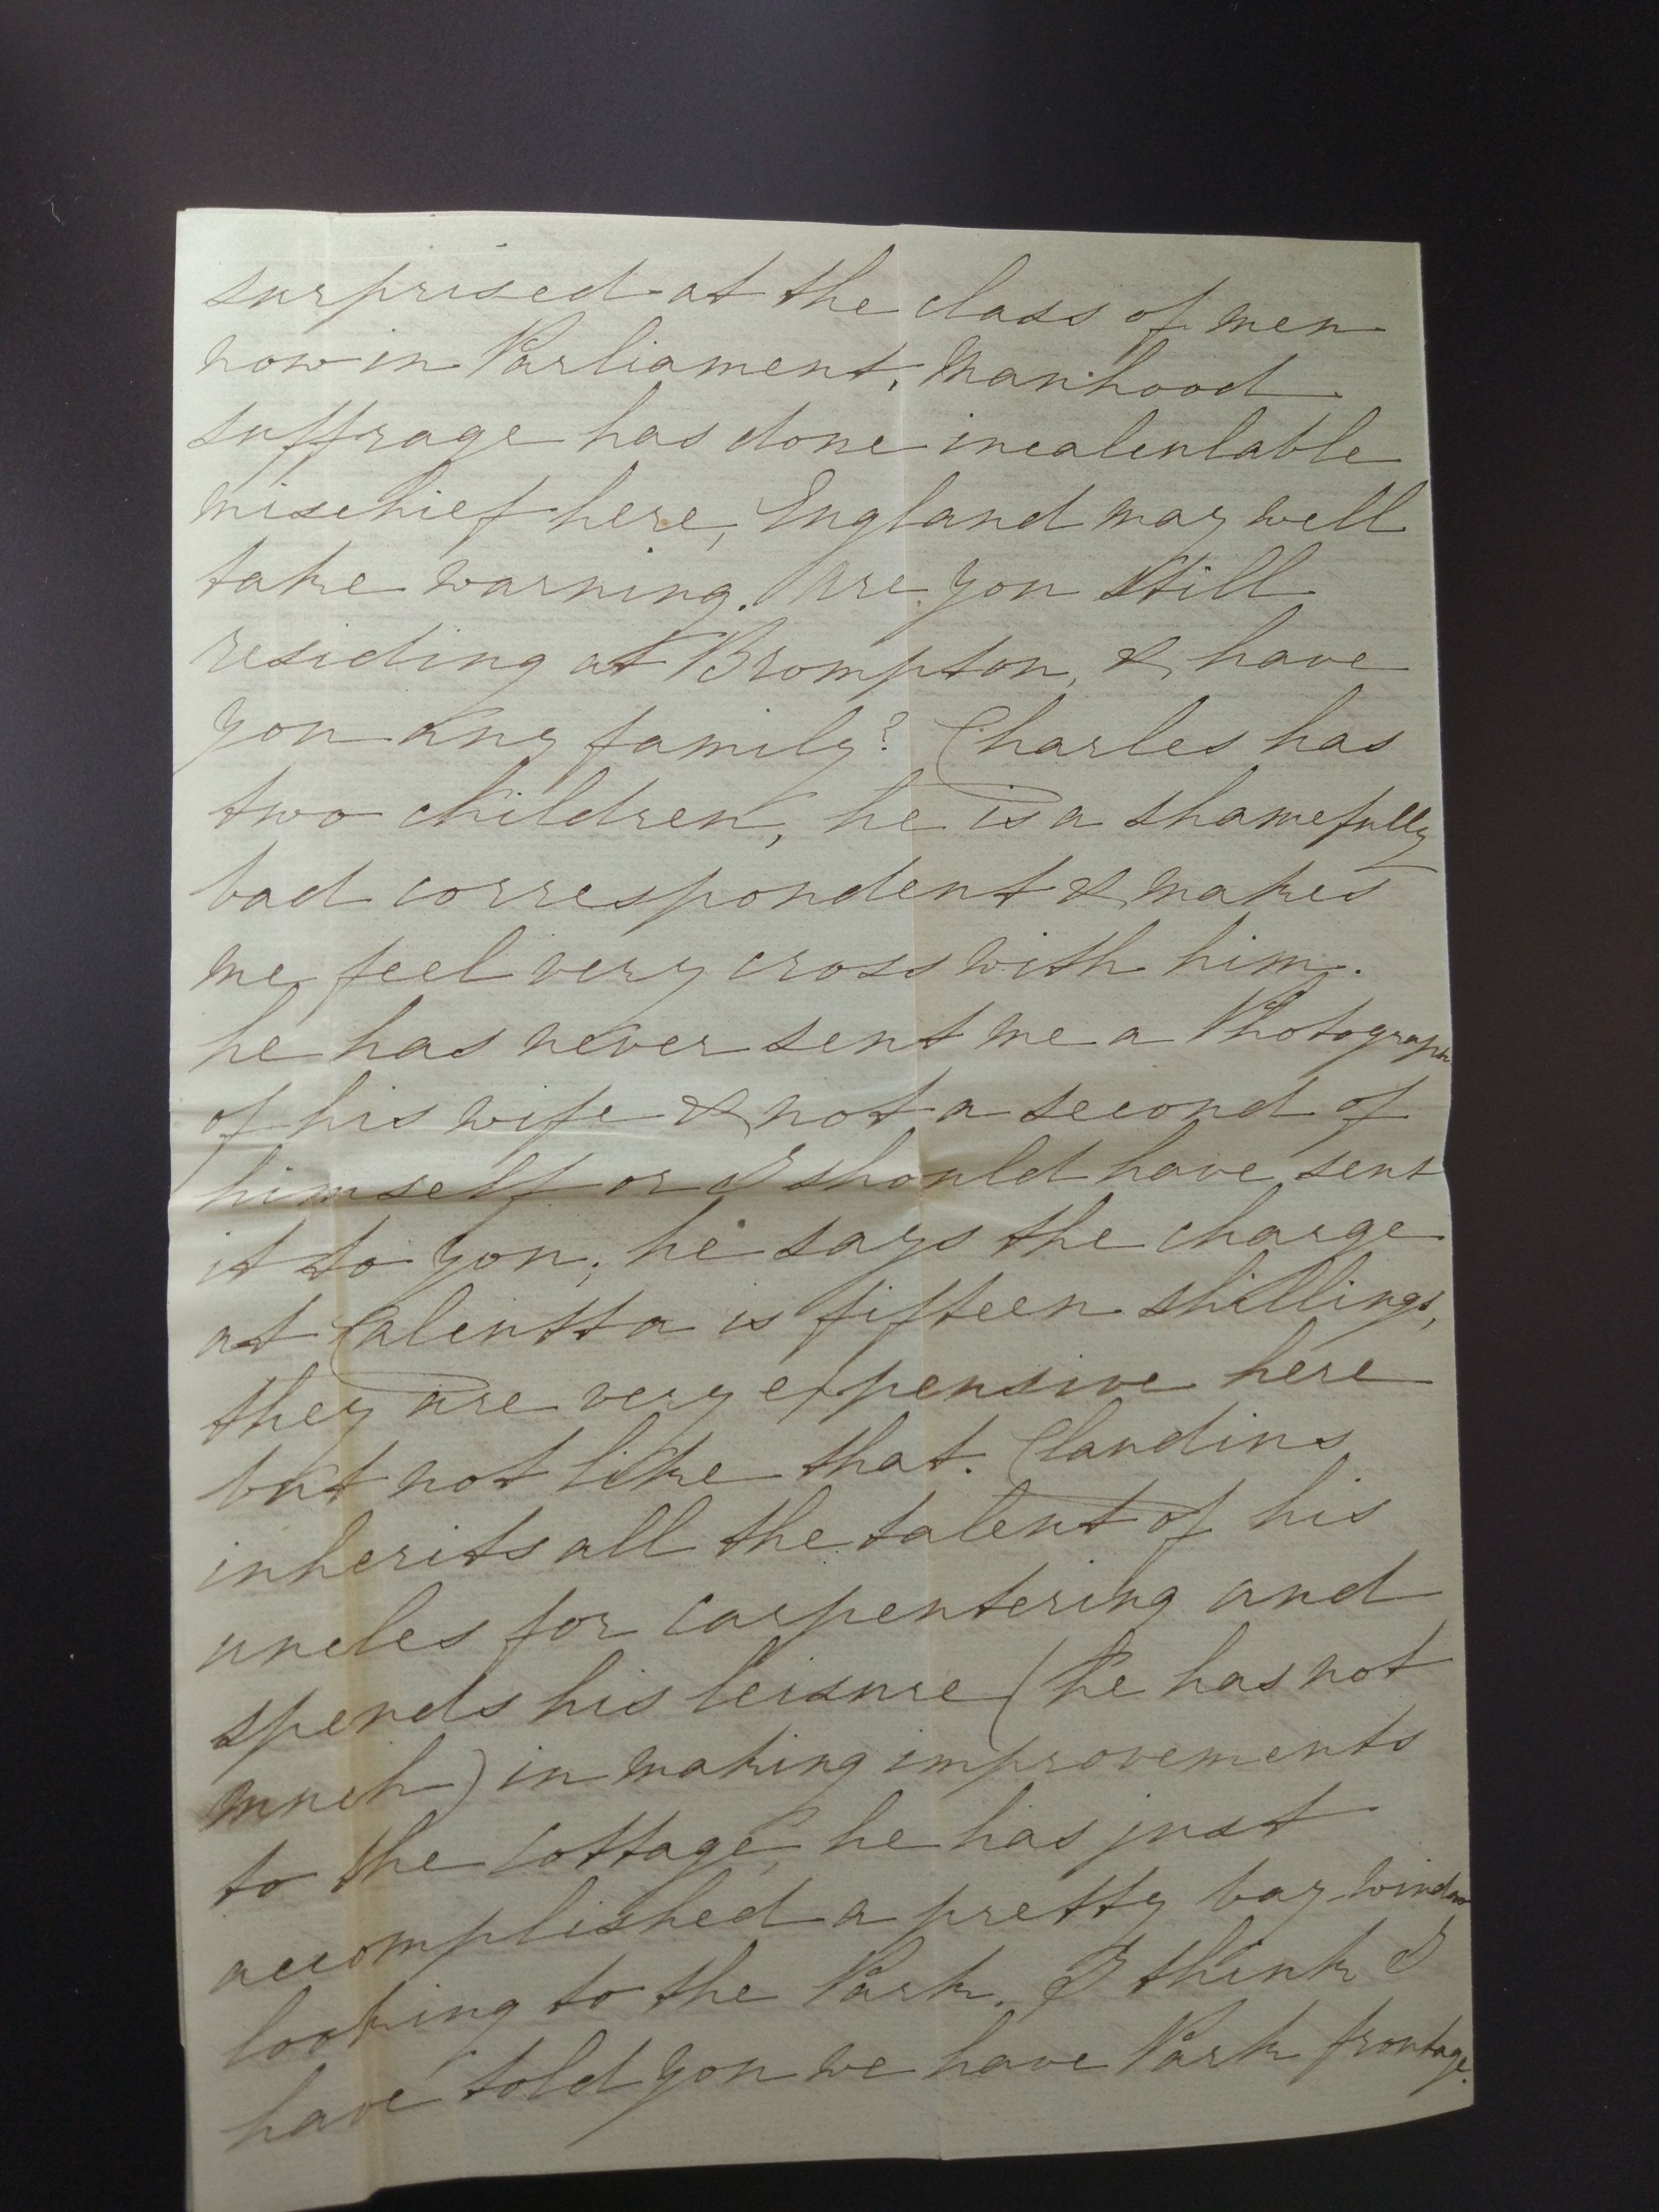 surprised at the class of men
now in Parliament, Manhood
suffrage has done incalculable
mischief here, England may well
take warning. Are you still
residing at Brompton, & have
you any family? Charles has
two children, he is a shamefully
bad correspondent & makes
me feel very cross with him.
he has never sent me a Photograph
of his wife & not a second of
himself or I should have sent
it to you; he says the charge
at Calcutta is fifteen shillings,
they are very expensive here
but not like that. Claudius
inherits all the talent of his
uncles for carpentering and
spends his leisure (he has not
much) in making improvements
to the cottage, he has just
accomplished a pretty bay window
looking to the Park. I think I
have told you we have Park frontage.